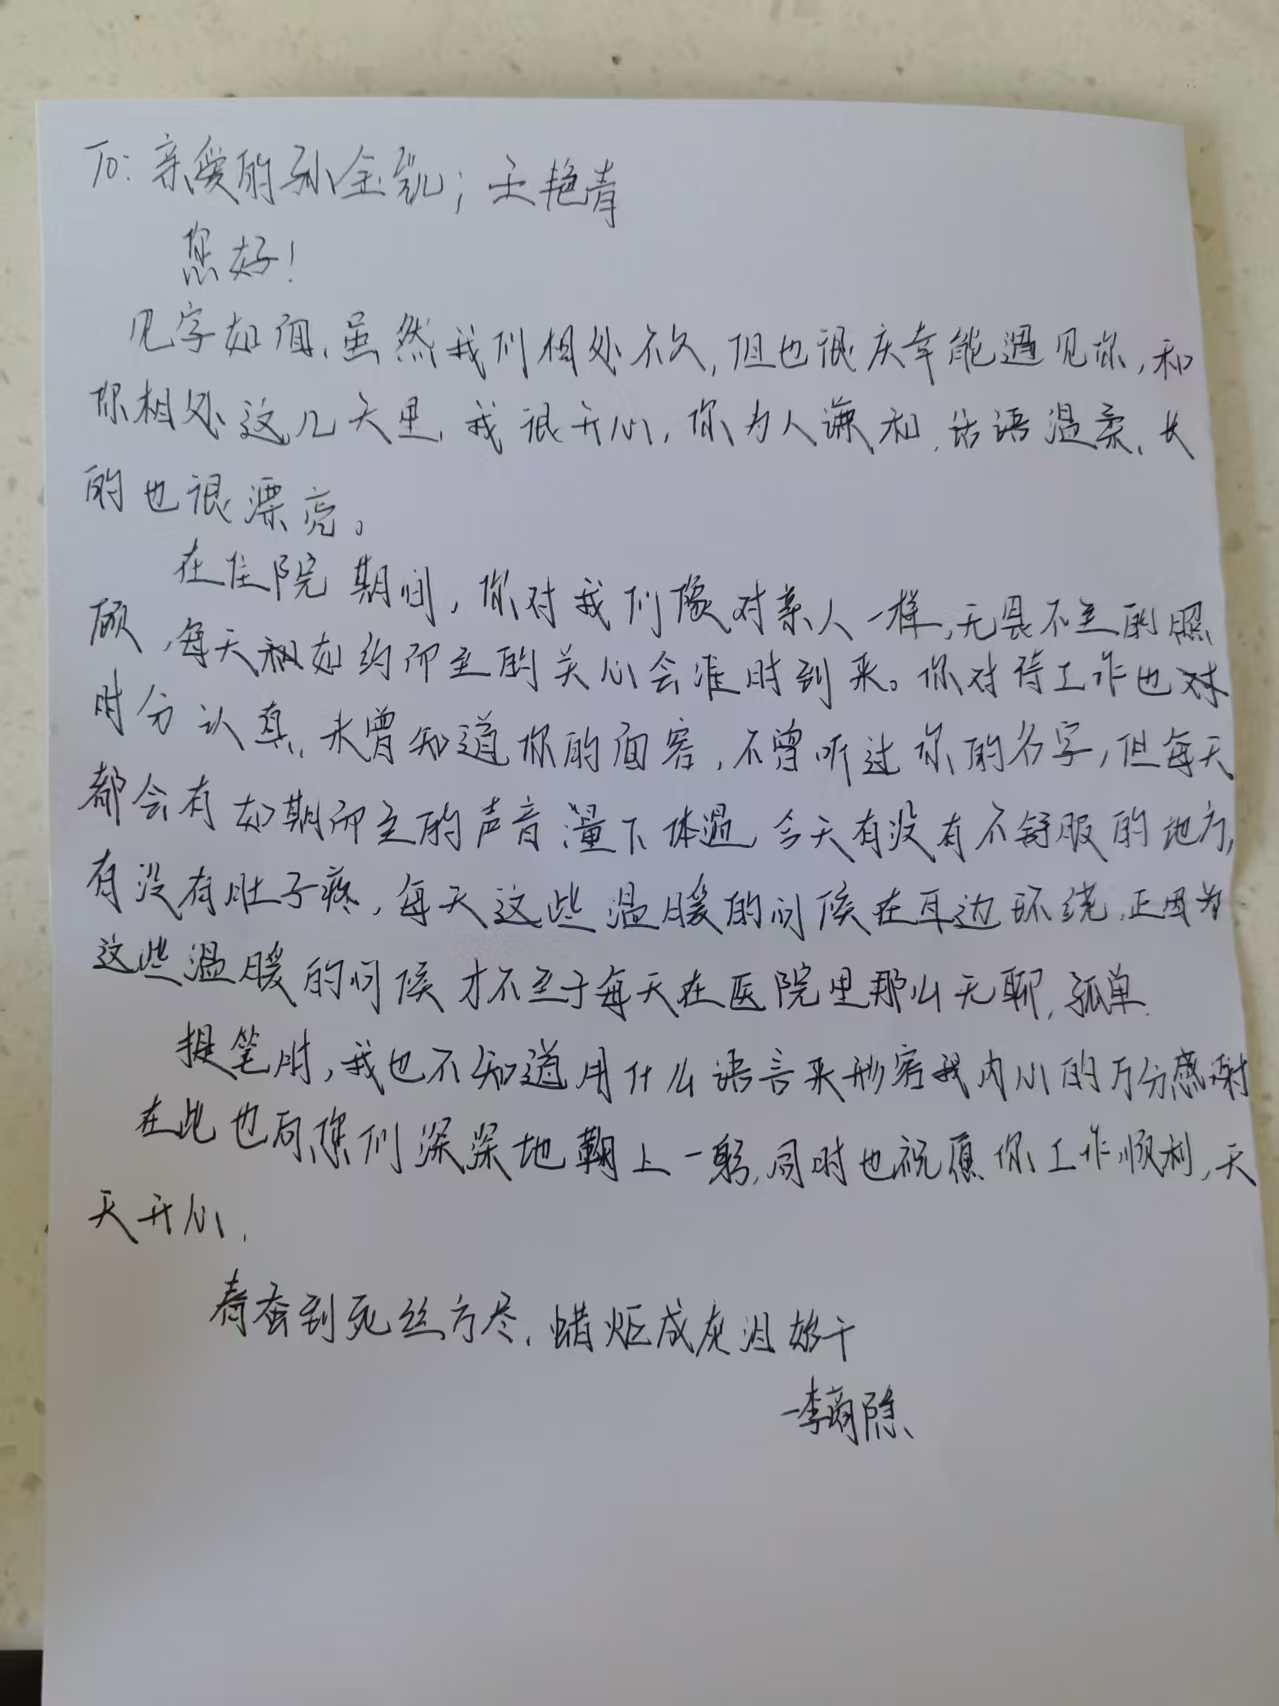 To: 亲爱的孙金凯; 王艳青
您好!
见字如面、虽然我们相处不久,但也很庆幸能遇见你,和
你相处这几天里,我很开心,你为人谦和,话语温柔、长
的也很漂亮。
在住院期间,你对我们像对亲人一样,无畏不至的照
顾,每天和如约而至的关心会准时到来。你对待工作也
时分认真、未曾知道你的面容,不曾听过你的名字,但每天
都会有如期而至的声音:量下体温,今天有没有不舒服的地方,
有没有肚子疼,每天这些温暖的问候在耳边环绕,正因为
这些温暖的问候才不至于每天在医院里那么无聊,孤单.
提笔时,我也不知道用什么语言来形容我内心的万分感谢
在此也向您们深深地鞠上一躬,同时也祝愿你工作顺利,天
天开心,
春蚕到死丝方尽,蜡炬成灰泪始干
—李商隐